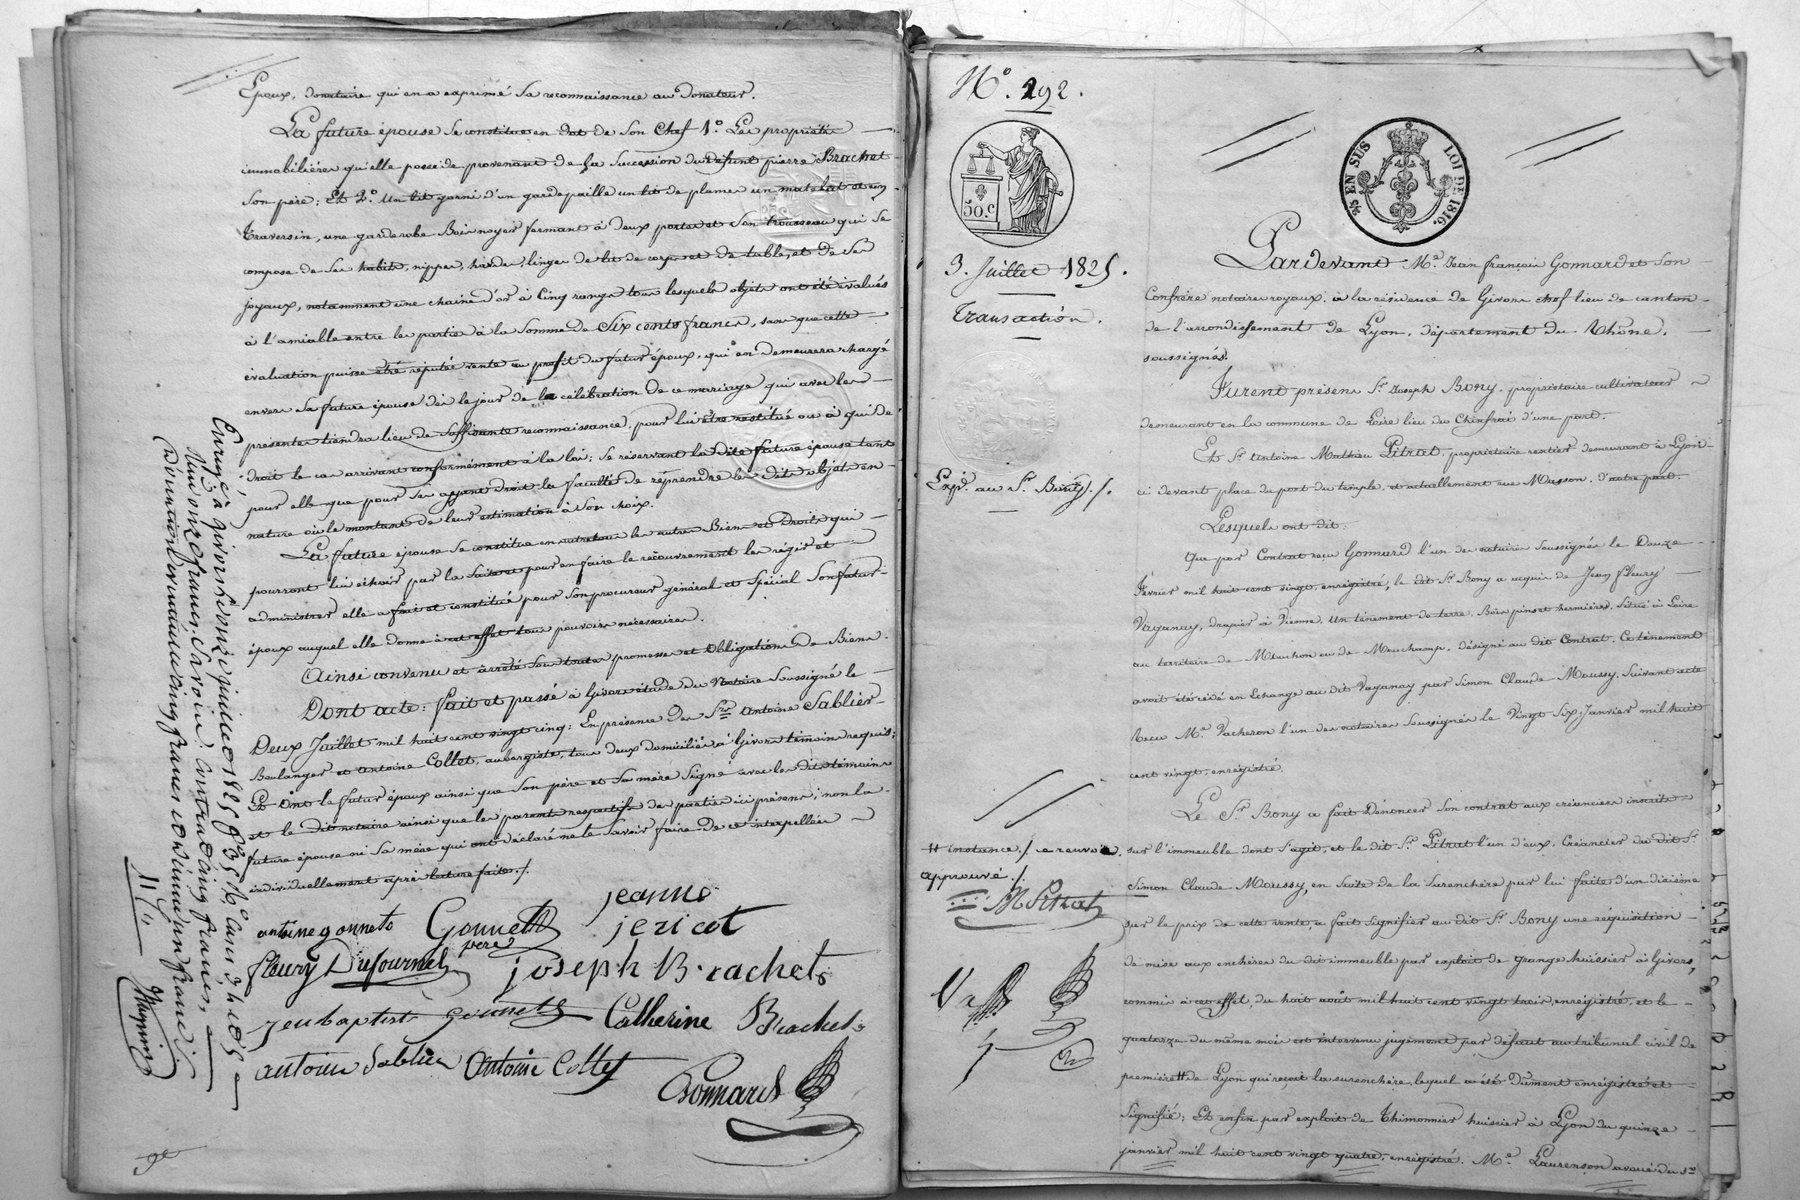 Epoux, donataire qui en a exprimé sa reconnaissance au donateur.
La future épouse se constitue en dot de son Chef 1.º Les propriétés
immobilières qu'elle possède provenant de la succession du défunt pierre Brachet
son père; Et 2.º Un lit garni d'un garde paille un lit de plumes un matelat et un
traversin, une garderobe Bois noyer fermant à deux portes et son trousseau qui se
compose de ses habits, nippes, hardes, linges de lit de corps et de table, et de ses
joyaux, notamment une chaine d'or à Cinq rangs tous lesquels objets ont été évalués
à l'amiable entre les parties à la somme de Six cents francs, sans que cette
évaluation puisse être réputée vente au profit du futur époux, qui en demeurera chargé
envers sa future épouse dès le jour de la célébration de ce mariage qui avec les
présentes tiendra lieu de suffisante reconnaissance, pour lui être restitué ou à qui de
droit le cas arrivant conformément à la loi; se réservant la dite future épouse tant
pour elle que pour ses ayant droit la faculté de reprendre les dits objets en
nature ou le montant de leur estimation à son choix.
La future épouse se constitue en outre tous les autres Biens et Droits qui
pourront lui échoir par la suite et pour en faire le recouvrement les régir et
administrer elle a fait et constitué pour son procureur général et spécial son futur
époux auquel elle donne à cet effet tous pouvoirs nécessaires.
Ainsi convenu et arrêté sous toutes promesses et Obligations de Biens.
Dont acte: fait et passé à Givors étude du Notaire Soussigné le
Deux Juillet mil huit cent vingt cinq: En présence des Srs Antoine Sablier
Boulanger et Antoine Collet, aubergiste, tous deux domiciliés à Givors témoins requis;
Et Ont le futur époux ainsi que son père et sa mère signé avec les dits témoins
et le dit notaire ainsi que les parents respectifs des parties ici présens; non la
future épouse ni sa mère qui ont déclaré ne le savoir faire de ce interpellées
individuellement après lecture faite./.
antoine gonnet
Gonnet
père
jeanne
jericot
fleury Dufournel
joseph Brachet
jeu baptiste gonnet
Catherine Brachet
antoine Sablier
Antoine Collet
Gonnard
Enregé à givors le onze juillet 1825 fo
Reçu onze francs, Savoir: Contrat cinq francs,
Donation cinq francs et dixième un franc
Nº. 292.
50.C
EN SUS LOI DE 1816.
3. Juillet 1825.
Transaction.
Expn. au Sr. Bony./.
Pardevant Me. Jean françois Gonnard et Son
Confrère notaires royaux, à la résidence de Givors chef lieu de canton
de l'arrondissement de Lyon, département du Rhône,
soussignés.
Furent présens Sr. Joseph Bony, propriétaire cultivateur
demeurant en la commune de Loire lieu du Chinfrai d'une part.
Et Sr. Antoine Mathieu Pitrat, propriétaire rentier demeurant à Lyon
ci devant place du port du temple, et actuellement rue Musson, d'autre part.
Lesquels ont dit:
Que par Contrat reçu Gonnard l'un des notaires soussignés le Douze
Février mil huit cent vingt, enregistré, le dit Sr. Bony a acquis de Jean Fleury
Vaganay, drapier à Vienne, Un tènement de terre, Bois pins et hermières, Situé à Loire
au territoire de Meuchon ou de Mouchamp, désigné au dit Contrat. Ce tènement
avait été cédé en Echange au dit Vaganay par Simon Claude Moussy, Suivant acte
Recu Me. Vacheron l'un des notaires soussignés le Vingt Six Janvier mil huit
cent vingt, enregistré.
Le Sr. Bony a fait Dénoncer son contrat aux créanciers inscrits
sur l'immeuble dont s'agit, et le dit Sr. Pitrat l'un d'eux, Créancier du dit Sr.
Simon Claude Moussy, en suite de la surenchère par lui faite d'un dixième
sur le prix de cette vente, a fait signifier au dit Sr. Bony une réquisition
de mise aux enchères du dit immeuble par exploit de Grange huissier à Givors,
commis à cet effet, du huit août mil huit cent vingt trois, enregistré, et le
quatorze du même mois est intervenu jugement par défaut au tribunal civil de
première # de Lyon qui reçoit la surenchère, lequel a été Dûment enregistré et
signifié; Et enfin par exploit de Thimonnier huissier à Lyon du quinze
janvier mil huit cent vingt quatre, enregistré. Me. Laurenson avoué du Sr
# instance./. ce renvoi
approuvé./.
M Pitrat